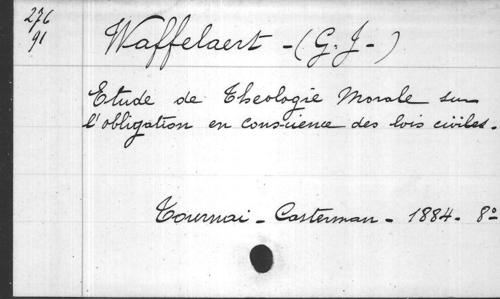 276
91
Waffelaert - (G. J-)
Etude de Theologie Morale sur
l'obligation en conscience des lois civiles.
Tournai - Casterman - 1884 - 8°